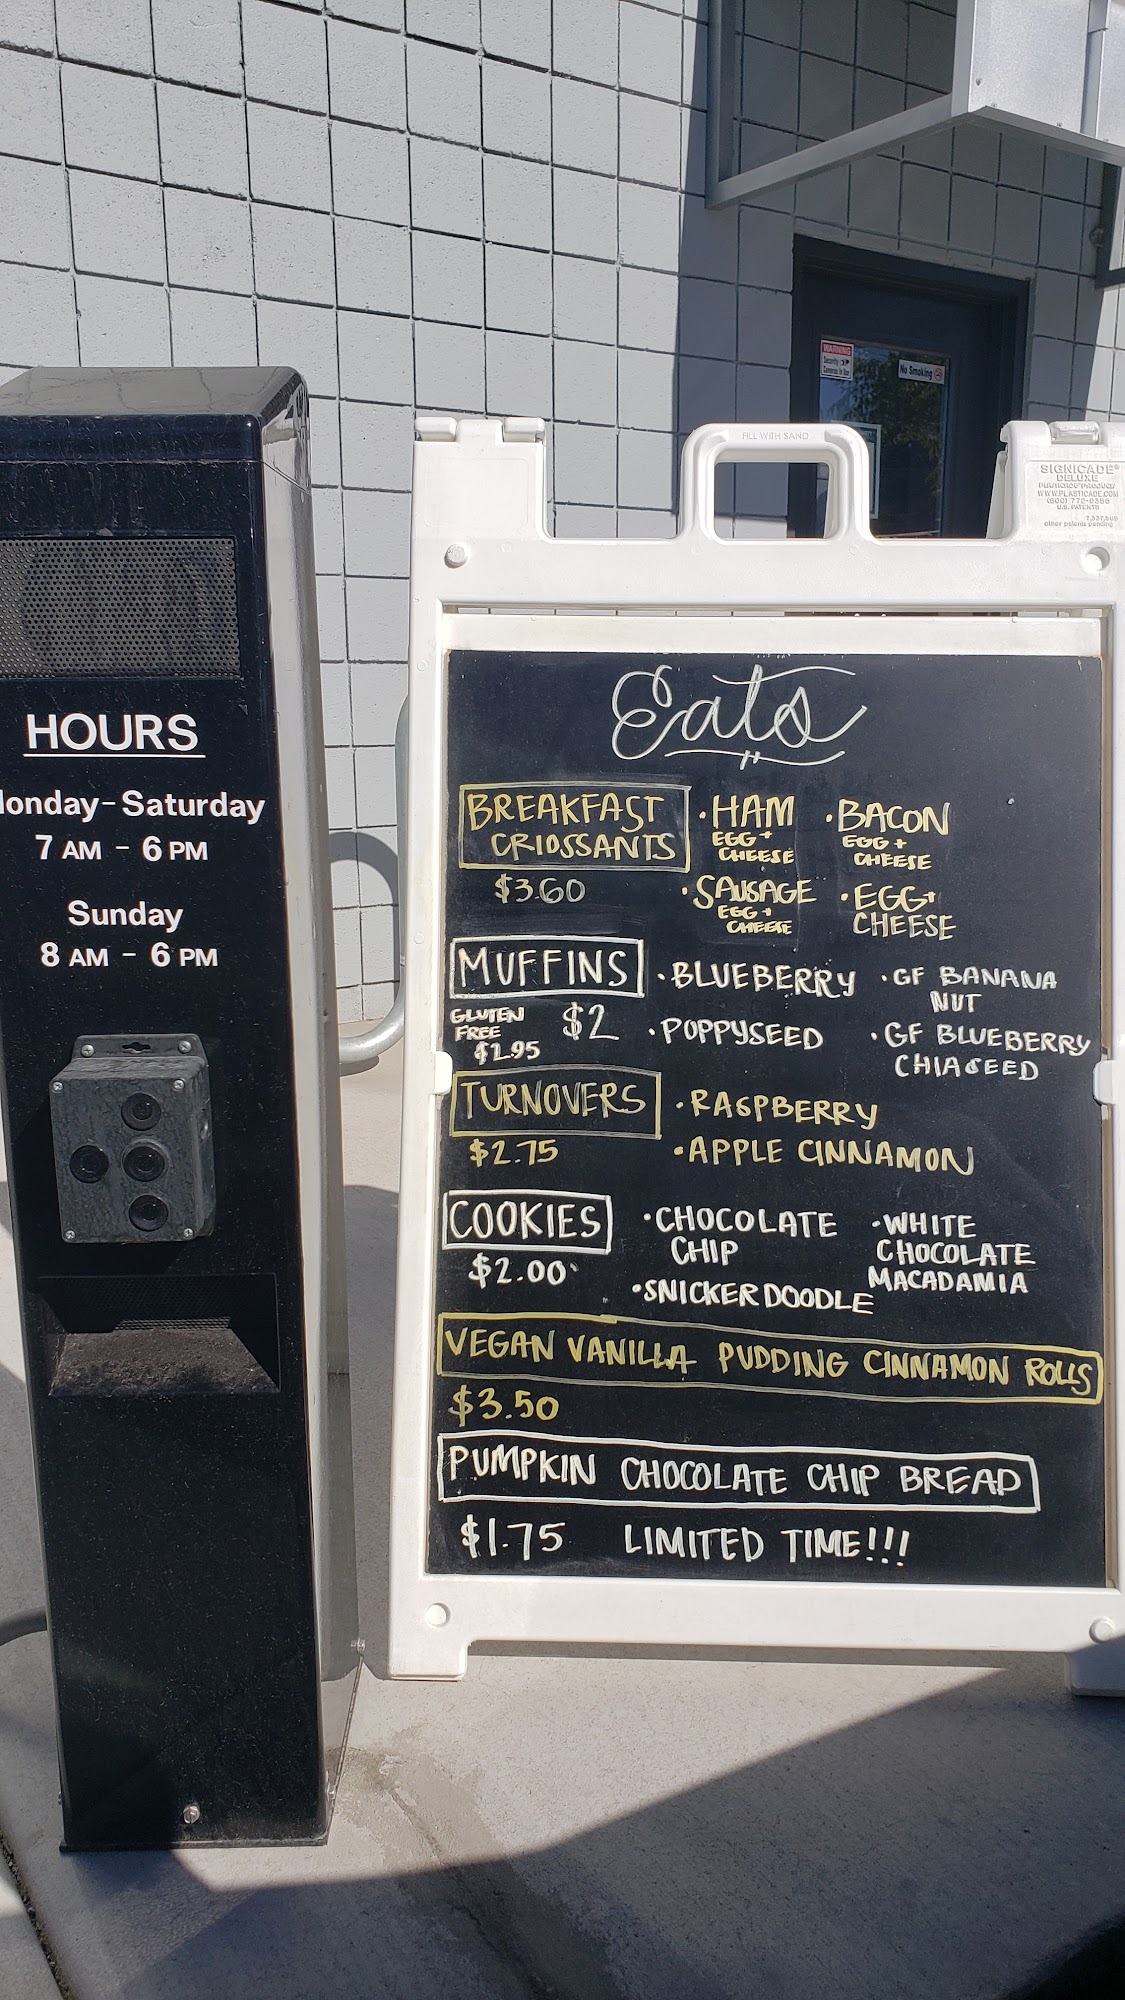 WARNING
Security
Cameras In Use
No Smoking
FILL WITH SAND
SIGNICADE®
DELUXE
PLASTICADE PRODUCTS
WWW.PLASTICADE.COM
(800) 772-0355
U.S. PATENTS
7,537,569
other patents pending
HOURS
onday-Saturday
7 AM - 6 PM
Sunday
8 AM - 6 PM
Eats
BREAKFAST
CRIOSSANTS
$3.60
• HAM
EGG +
CHEESE
• BACON
EGG +
CHEESE
• SAUSAGE
EGG +
CHEESE
• EGG+
CHEESE
MUFFINS
GLUTEN
FREE
$2.95
$2
• BLUEBERRY
• GF BANANA
NUT
• POPPYSEED
• GF BLUEBERRY
CHIASEED
TURNOVERS
$2.75
• RASPBERRY
• APPLE CINNAMON
COOKIES
$2.00
• CHOCOLATE
CHIP
• WHITE
CHOCOLATE
MACADAMIA
• SNICKERDOODLE
VEGAN VANILLA PUDDING CINNAMON ROLLS
$3.50
PUMPKIN CHOCOLATE CHIP BREAD
$1.75 LIMITED TIME!!!